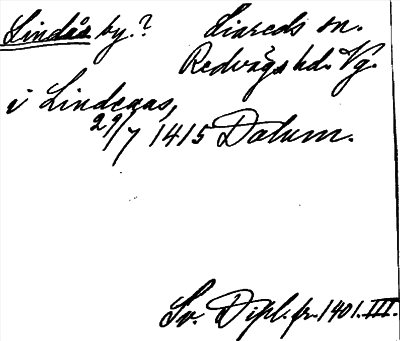 Lindås by.? Liareds sn.
Redvägs hd. Vg.
i Lindeaas,
29/7 1415 Datum.
Sv. Dipl. fr. 1401. III.